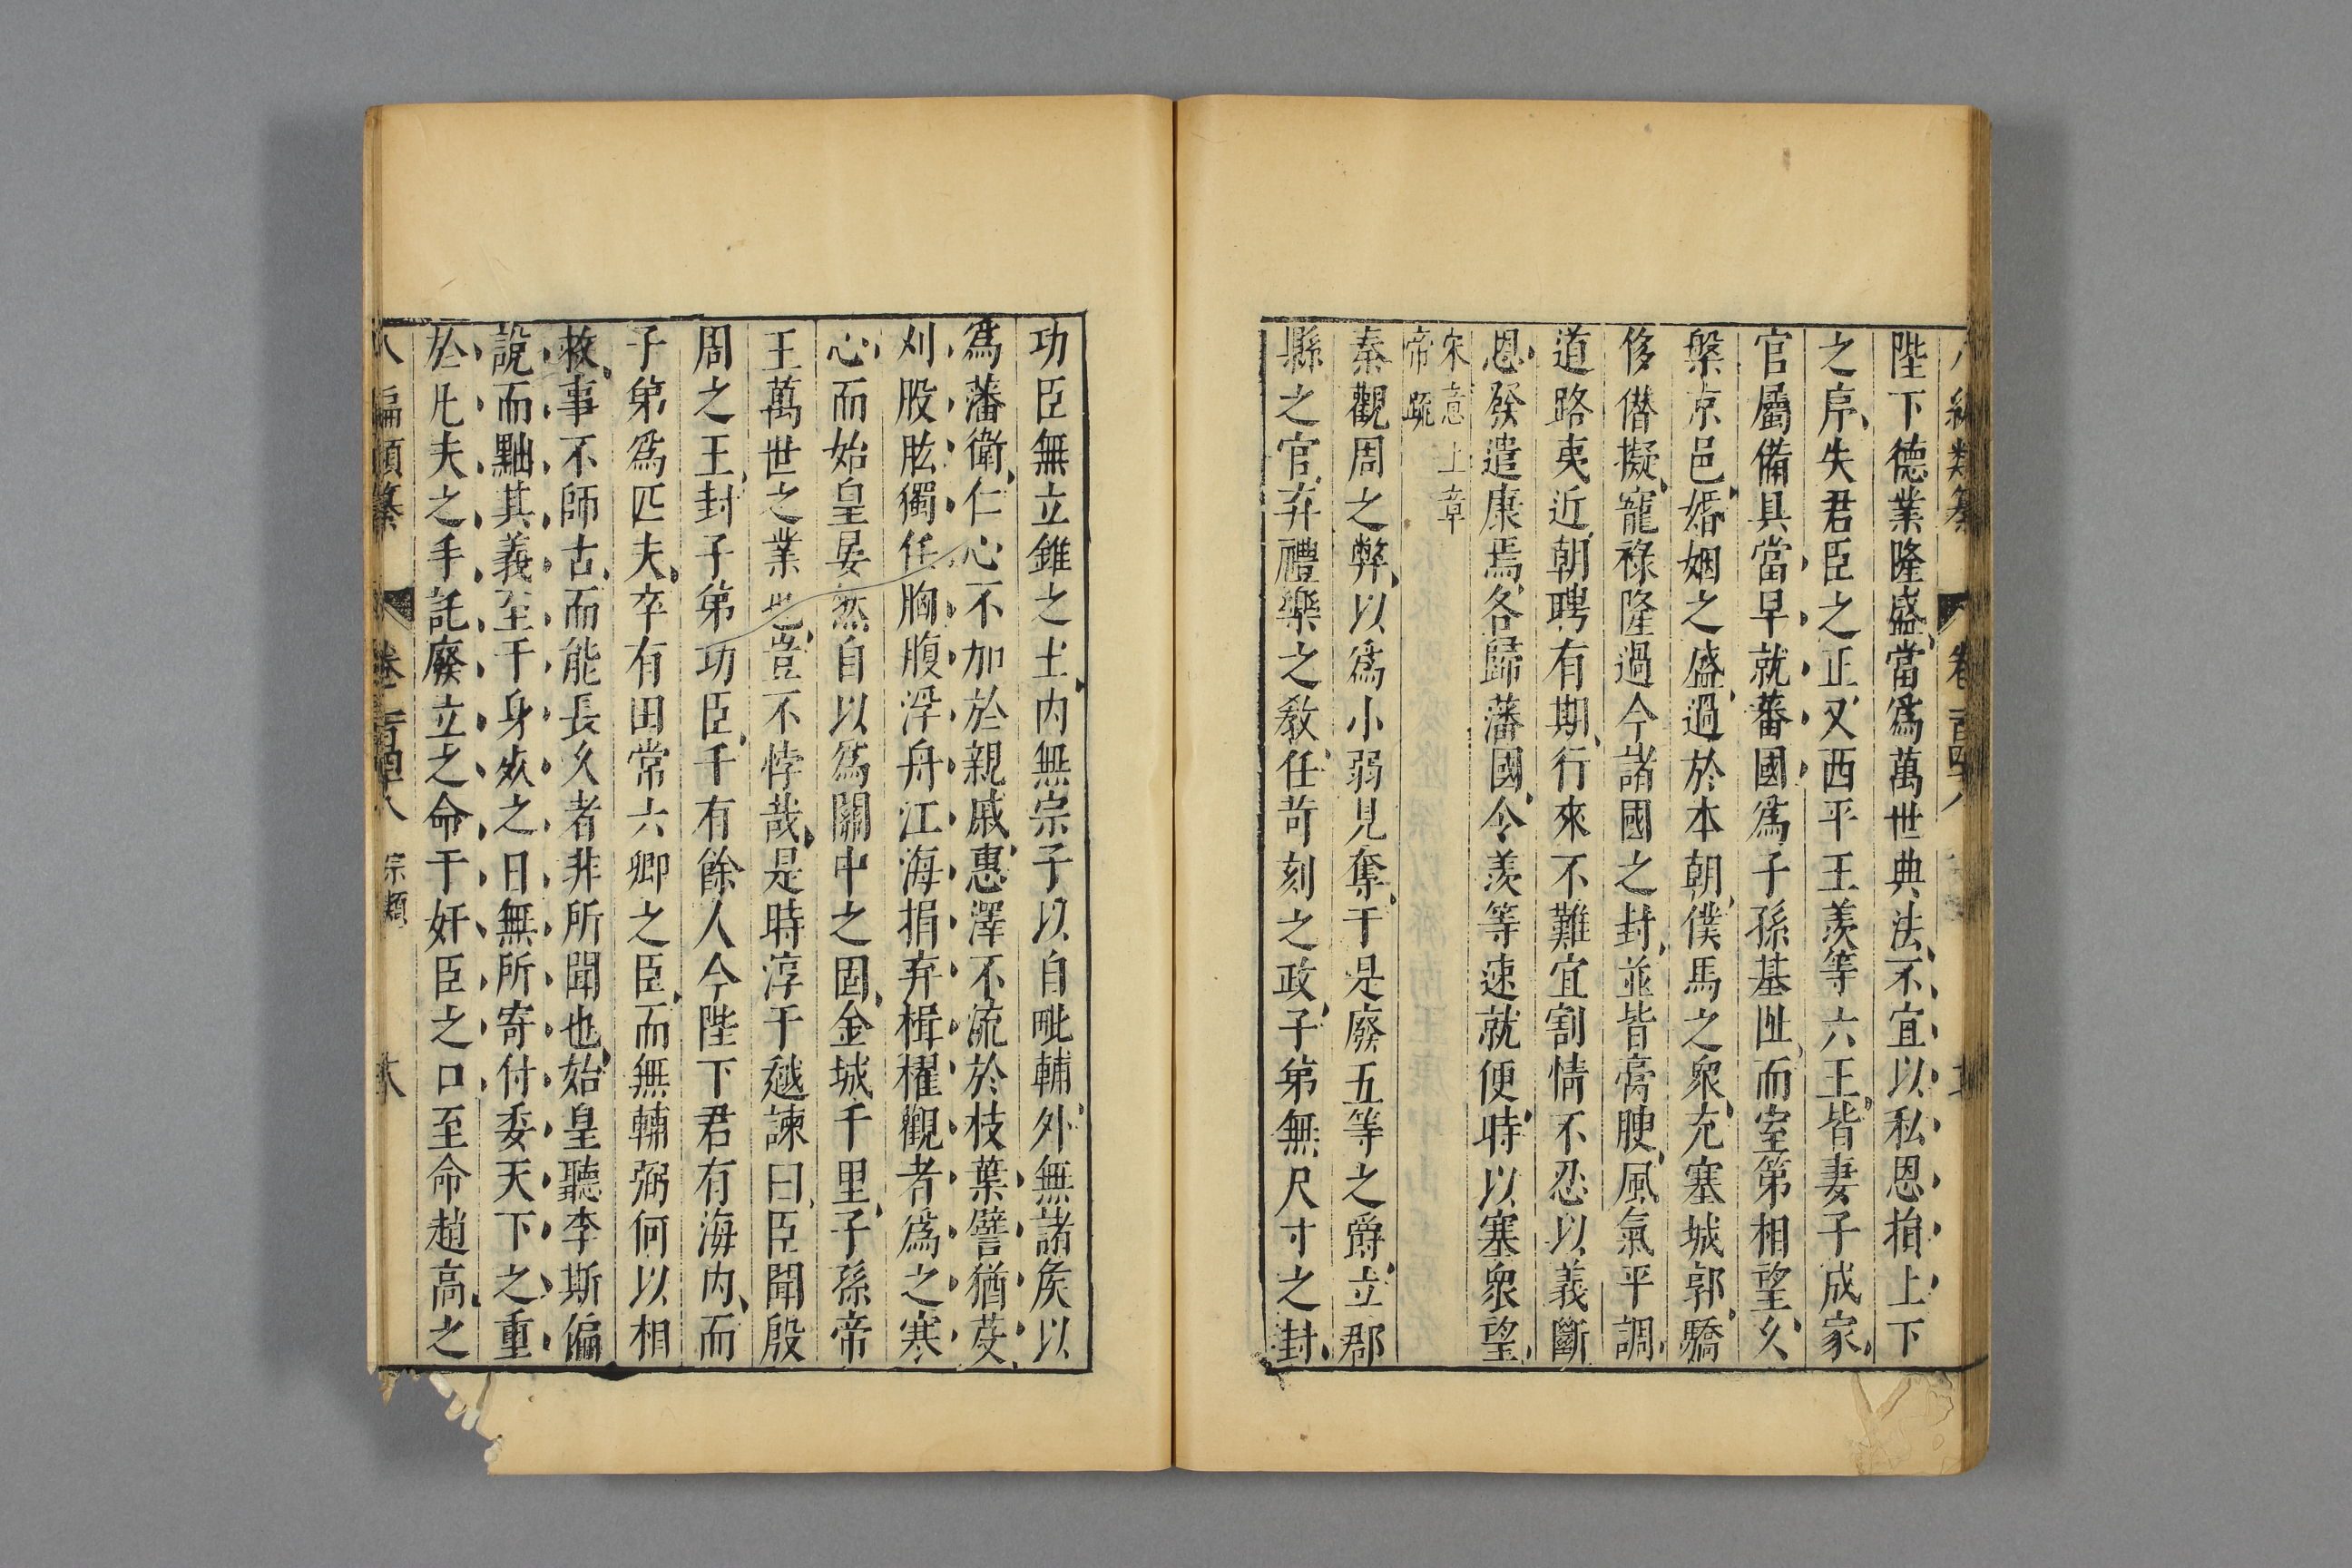 八編類纂 卷一百四十八
陛下德業隆盛當爲萬世典法不宜以私恩損上下
之序失君臣之正又西平王羨等六王皆妻子成家
官屬備具當早就蕃國爲子孫基阯而室第相望久
槃京邑婚姻之盛過於本朝僕馬之衆充塞城郭驕
侈僭擬寵祿隆過今諸國之封並皆膏腴風氣平調
道路夷近朝聘有期行來不難宜割情不忍以義斷
恩發遣康焉各歸藩國令羨等速就便時以塞衆望
宋意上章
帝疏
秦觀周之弊以爲小弱見奪于是廢五等之爵立郡
縣之官弃禮樂之敎任苛刻之政子弟無尺寸之封
功臣無立錐之土内無宗子以自毗輔外無諸矦以
爲藩衛仁心不加於親戚惠澤不流於枝葉譬猶芟
刈股肱獨任胸腹浮舟江海捐弃楫櫂觀者爲之寒
心而始皇晏然自以爲關中之固金城千里子孫帝
王萬世之業也豈不悖哉是時淳于越諫曰臣聞殷
周之王封子弟功臣千有餘人今陛下君有海内而
子弟爲匹夫卒有田常六卿之臣而無輔弼何以相
救事不師古而能長久者非所聞也始皇聽李斯偏
說而黜其義至于身歿之日無所寄付委天下之重
於凡夫之手託廢立之命于奸臣之口至命趙高之
八編類纂 卷一百四十八 宗類